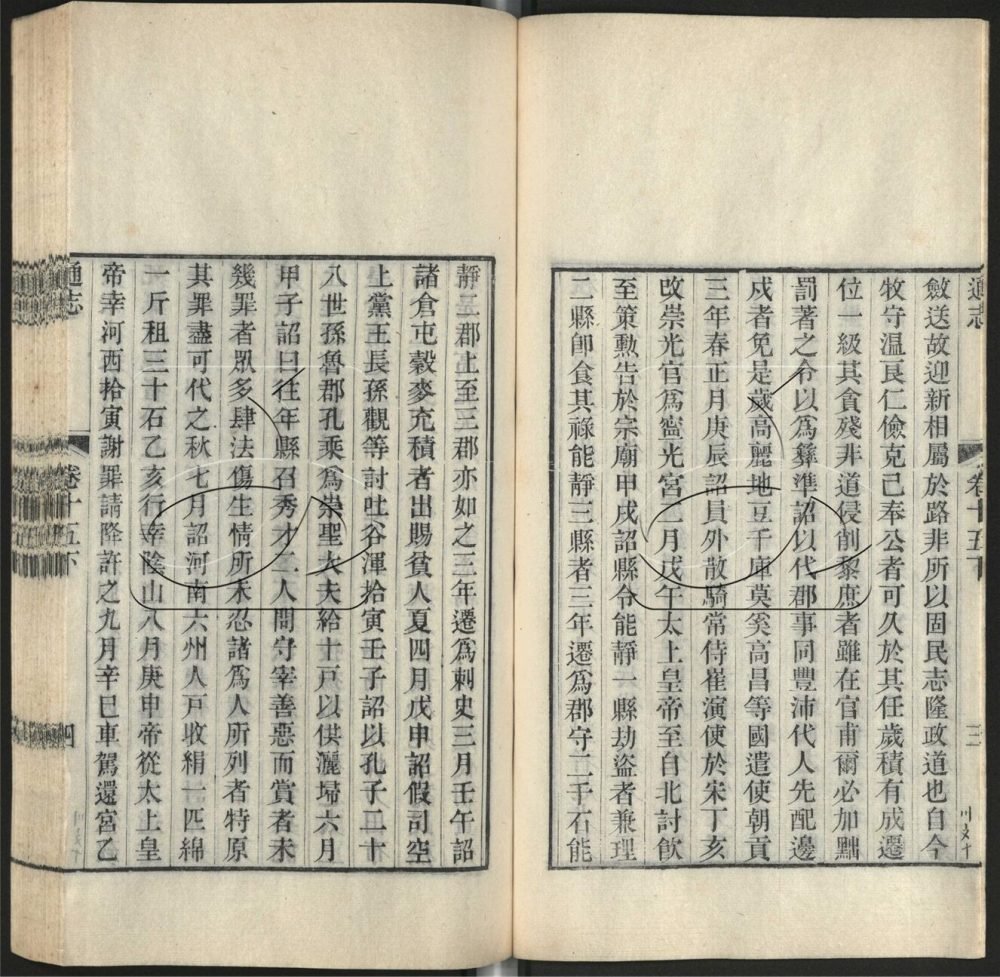 通志
卷十五下
三
斂送故迎新相屬於路非所以固民志隆政道也自今
牧守溫良仁儉克己奉公者可久於其任歲積有成遷
位一級其貪殘非道侵削黎庶者雖在官甫爾必加黜
罰著之令以爲彝準詔以代郡事同豐沛代人先配邊
戍者免是歲高麗地豆干庫莫奚高昌等國遣使朝貢
三年春正月庚辰詔員外散騎常侍崔演使於宋丁亥
改崇光宮爲寧光宮二月戊午太上皇帝至自北討飲
至策勳告於宗廟甲戌詔縣令能靜一縣劫盜者兼理
二縣卽食其祿能靜三縣者三年遷爲郡守二千石能
靜二郡上至三郡亦如之三年遷爲刺史三月壬午詔
諸倉屯穀麥充積者出賜貧人夏四月戊申詔假司空
上黨王長孫觀等討吐谷渾拾寅壬子詔以孔子二十
八世孫魯郡孔乘爲崇聖大夫給十戶以供灑埽六月
甲子詔曰往年縣召秀才二人問守宰善惡而賞者未
幾罪者眾多肆法傷生情所未忍諸爲人所列者特原
其罪盡可代之秋七月詔河南六州人戶收絹一匹綿
一斤租三十石乙亥行幸陰山八月庚申帝從太上皇
帝幸河西拾寅謝罪請降許之九月辛巳車駕還宮乙
通志
卷十五下
四